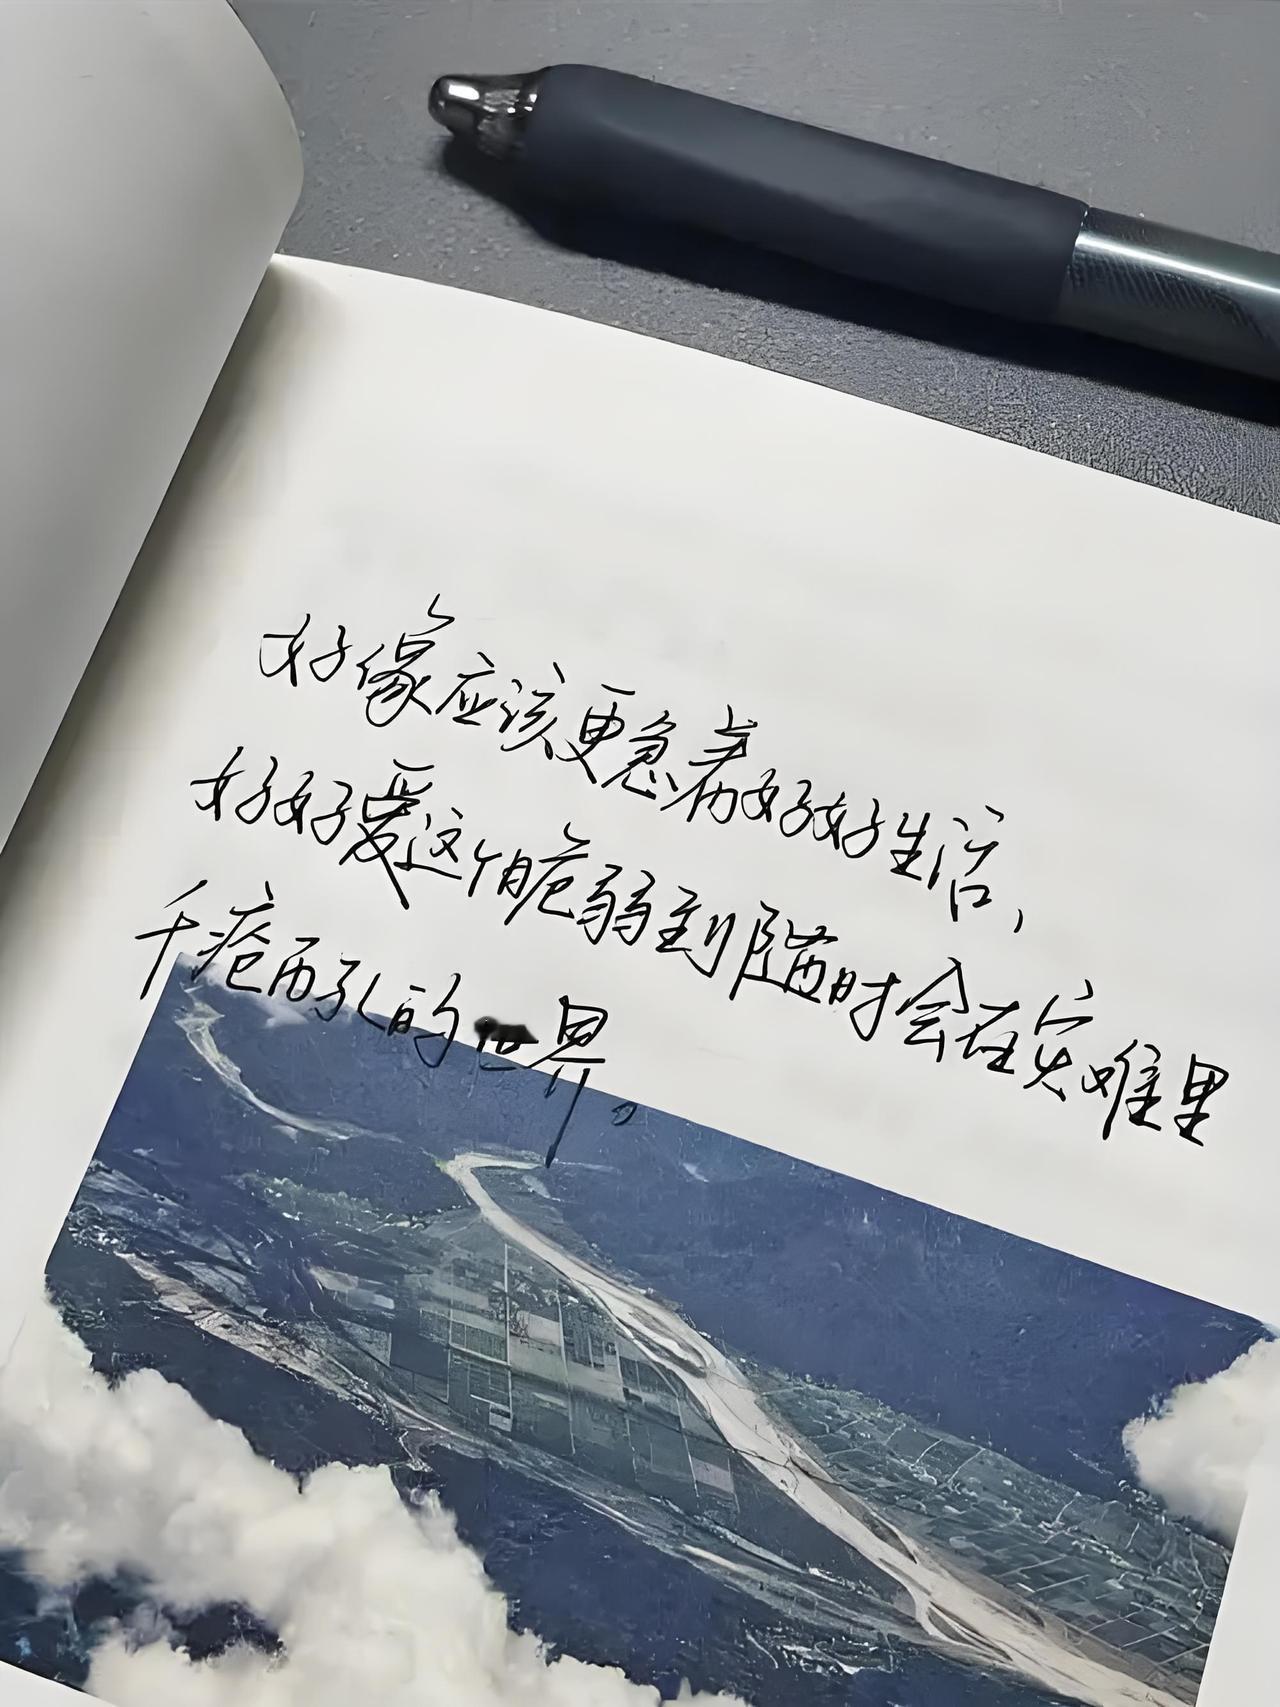 好像应该更急着好好生活，
好好爱这个脆弱到随时会在灾难里
千疮百孔的世界。